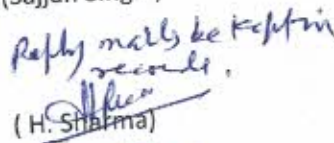 (Sajjan Singh)
Reply may be kept in
records.
( H. Sharma)